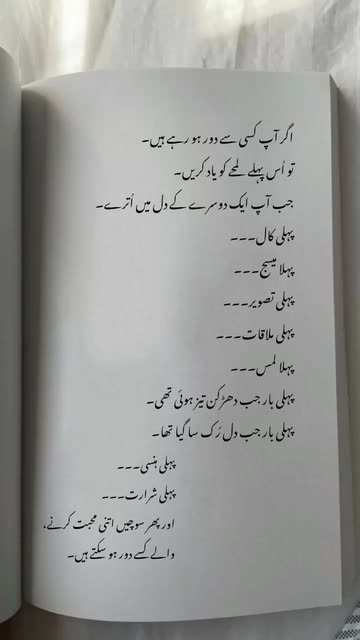 اگر آپ کسی سے دور ہو رہے ہیں۔
تو اُس پہلے لمحے کو یاد کریں۔
جب آپ ایک دوسرے کے دل میں اُترے۔
پہلی کال۔۔۔
پہلا میسج۔۔۔
پہلی تصویر۔۔۔
پہلی ملاقات۔۔۔
پہلا لمس۔۔۔
پہلی بار جب دھڑکن تیز ہوئی تھی۔
پہلی بار جب دل رُک سا گیا تھا۔
پہلی ہنسی۔۔۔
پہلی شرارت۔۔۔
اور پھر سوچیں اتنی محبت کرنے،
والے کسے دور ہو سکتے ہیں۔